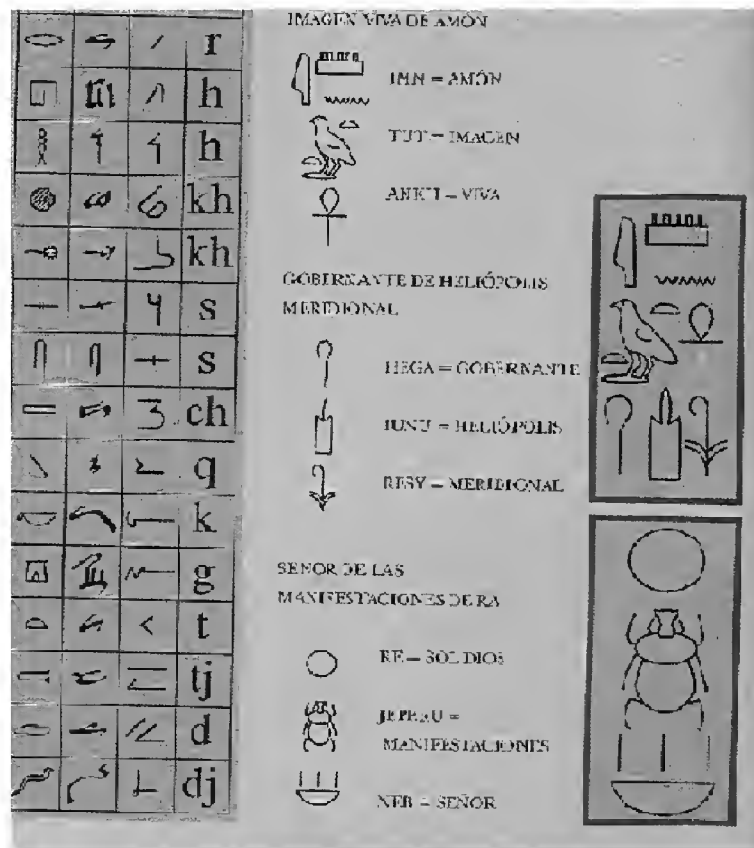 r
h
h
kh
kh
s
s
ch
q
k
g
t
tj
d
dj
IMAGEN VIVA DE AMÓN
IMN = AMÓN
TUT = IMAGEN
ANKH = VIVA
GOBERNANTE DE HELIÓPOLIS
MERIDIONAL
HEGA = GOBERNANTE
IUNU = HELIÓPOLIS
RESY = MERIDIONAL
SEÑOR DE LAS
MANIFESTACIONES DE RA
RE = SOL DIOS
JEPERU =
MANIFESTACIONES
NEB = SEÑOR